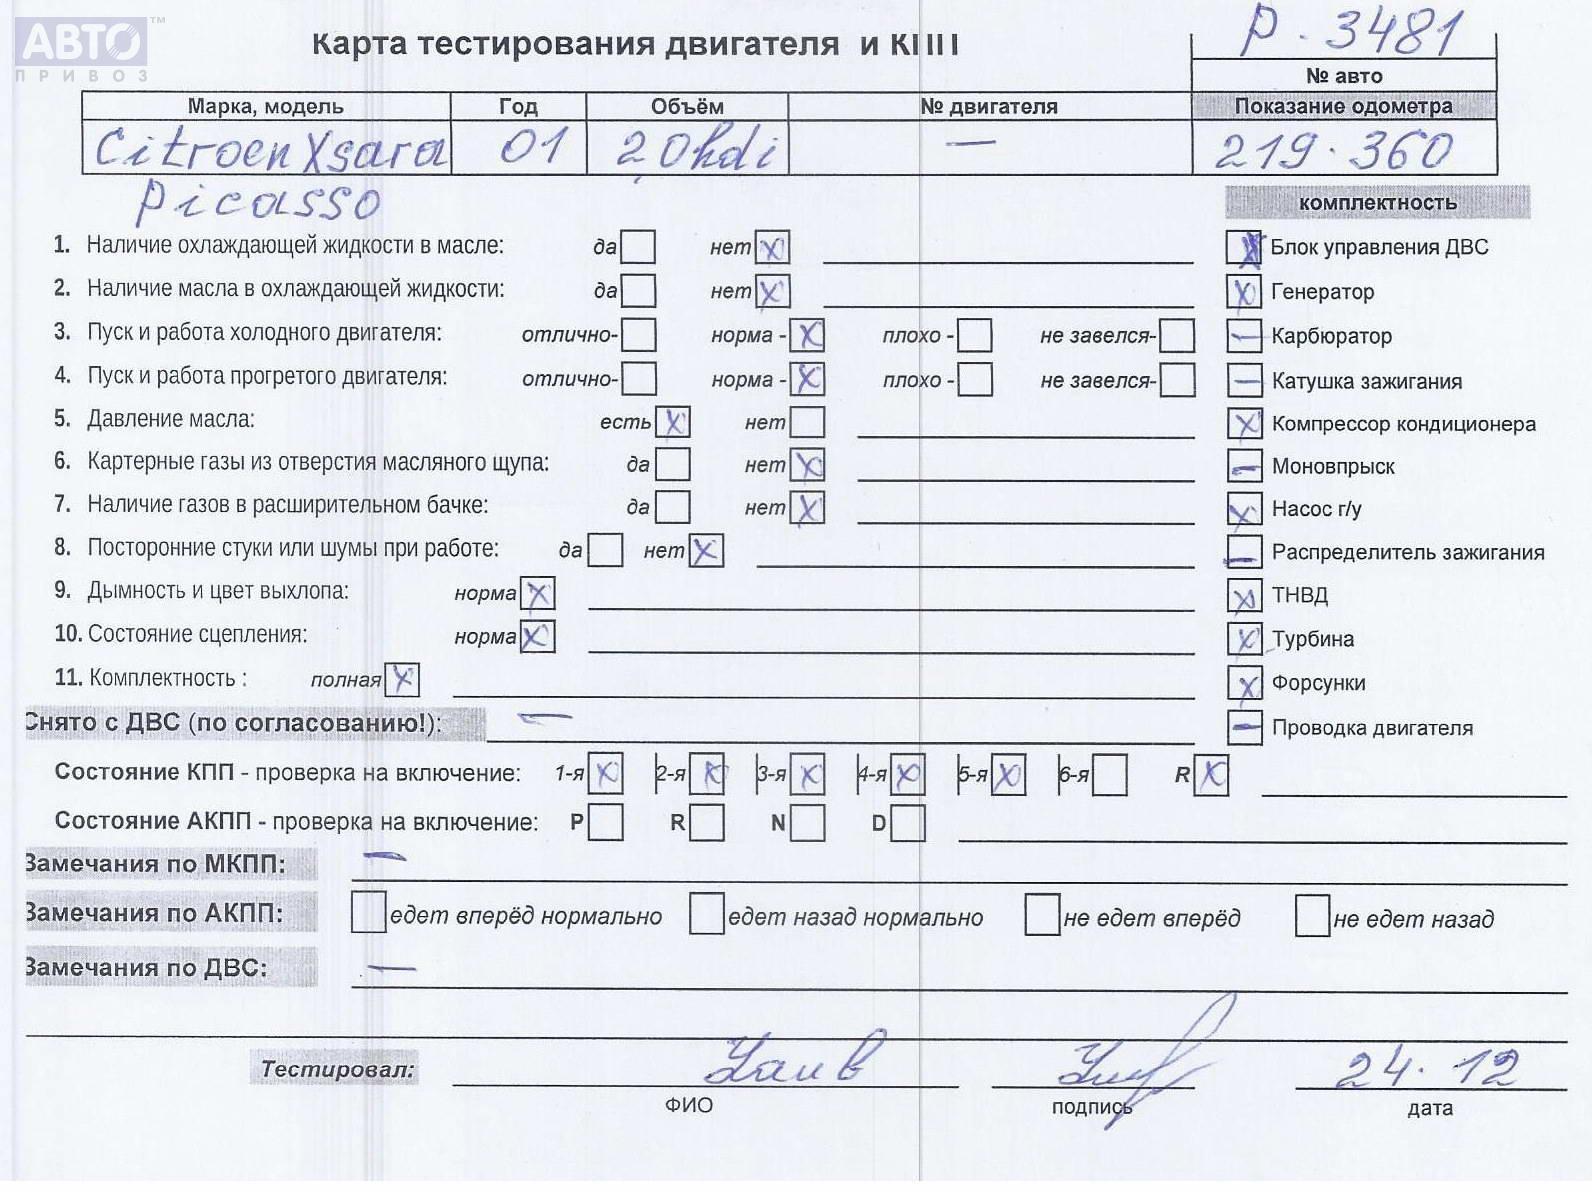 АВТО™
ПРИВОЗ
Карта тестирования двигателя и КПП
P. 3481
№ авто
Марка, модель Год Объём № двигателя Показание одометра
Citroen Xsara 01 2.0hdi — 219.360
Picasso
комплектность
1. Наличие охлаждающей жидкости в масле: да нет X
Блок управления ДВС
2. Наличие масла в охлаждающей жидкости: да нет X
X Генератор
3. Пуск и работа холодного двигателя: отлично- норма - X плохо - не завелся-
— Карбюратор
4. Пуск и работа прогретого двигателя: отлично- норма - X плохо - не завелся-
— Катушка зажигания
5. Давление масла: есть X нет
X Компрессор кондиционера
6. Картерные газы из отверстия масляного щупа: да нет X
— Моновпрыск
7. Наличие газов в расширительном бачке: да нет X
X Насос г/у
8. Посторонние стуки или шумы при работе: да нет X
— Распределитель зажигания
9. Дымность и цвет выхлопа: норма X
X ТНВД
10. Состояние сцепления: норма X
X Турбина
11. Комплектность : полная X
X Форсунки
Снято с ДВС (по согласованию!): —
— Проводка двигателя
Состояние КПП - проверка на включение: 1-я X 2-я X 3-я X 4-я X 5-я X 6-я R X
Состояние АКПП - проверка на включение: P R N D
Замечания по МКПП: —
Замечания по АКПП: едет вперёд нормально едет назад нормально не едет вперёд не едет назад
Замечания по ДВС: —
Тестировал: 24.12
ФИО подпись дата